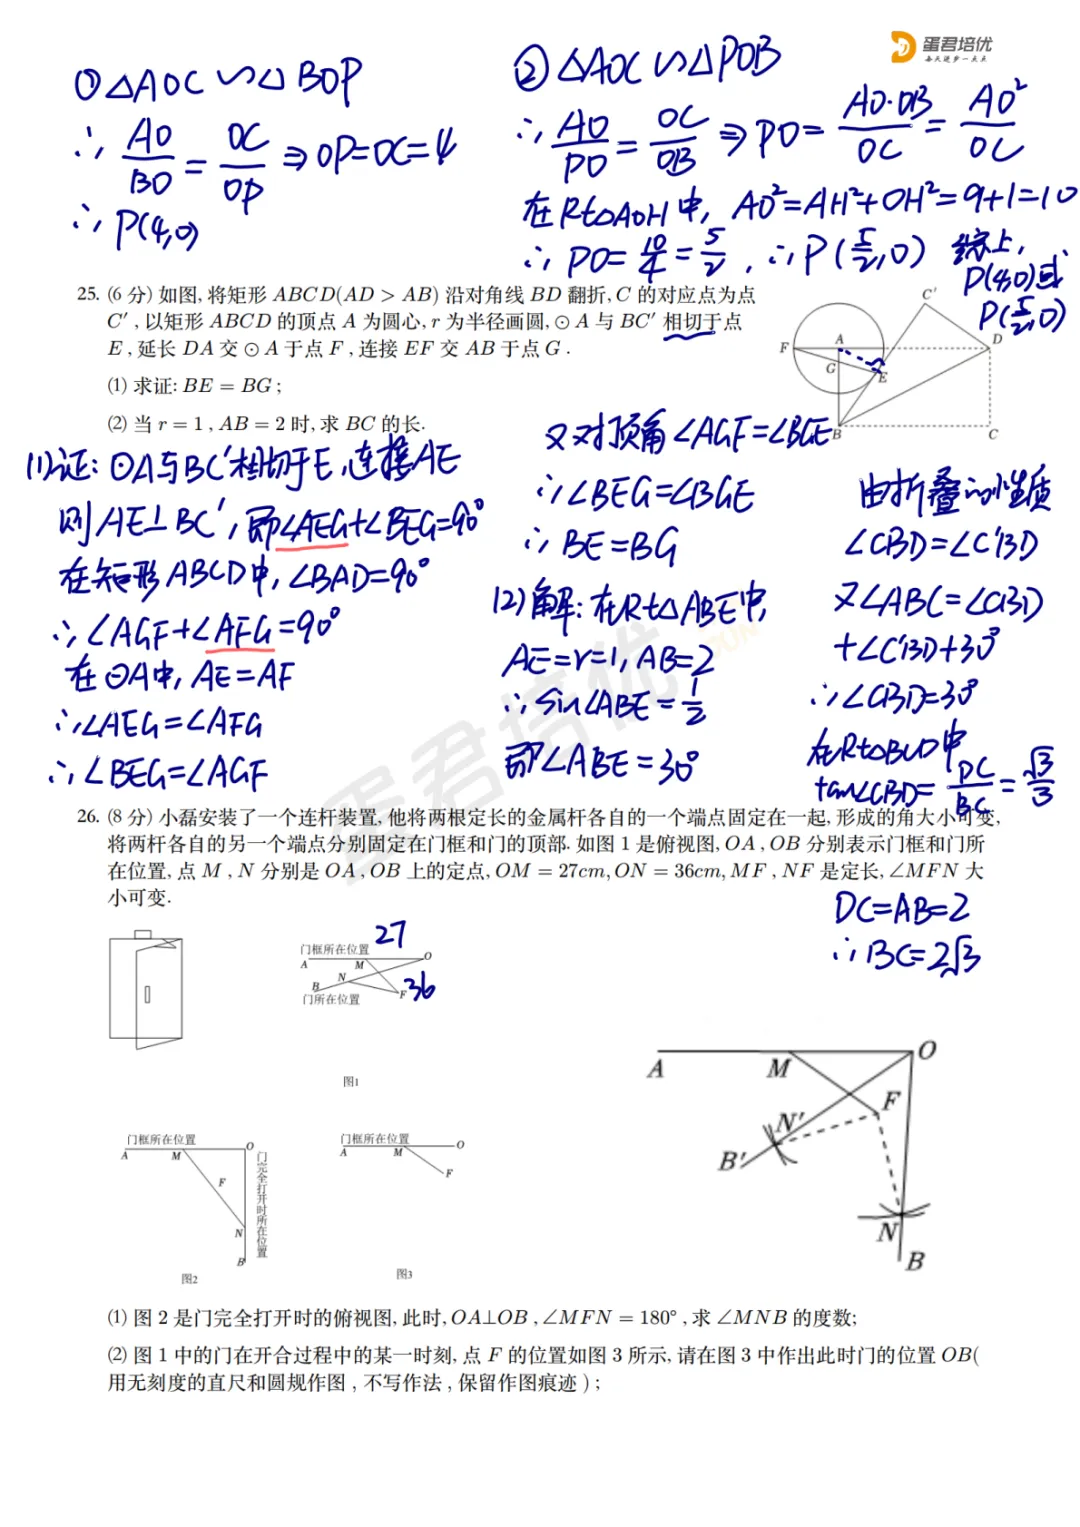 蛋君培优
每天进步一点点
①△AOC∽△BOP
∴ AO/BO = OC/OP ⇒ OP=OC=4
∴ P(4,0)
②△AOC∽△POB
∴ AO/PO = OC/OB ⇒ PO = AO·OB/OC = AO²/OC
在Rt△AOH中, AO²=AH²+OH²=9+1=10
∴ PO= 10/4 = 5/2, ∴P(5/2,0)
综上,
P(4,0)或
P(5/2,0)
25. (6 分) 如图, 将矩形 ABCD(AD > AB) 沿对角线 BD 翻折, C 的对应点为点
C′ , 以矩形 ABCD 的顶点 A 为圆心, r 为半径画圆, ⊙A 与 BC′ 相切于点
E , 延长 DA 交 ⊙A 于点 F , 连接 EF 交 AB 于点 G .
(1) 求证: BE = BG ;
(2) 当 r = 1 , AB = 2 时, 求 BC 的长.
C′
F
A
D
G
E
B
C
(1)证: ⊙A与BC′相切于E,连接AE
则AE⊥BC′, 即∠AEG+∠BEG=90°
在矩形ABCD中, ∠BAD=90°
∴∠AGF+∠AFG=90°
在⊙A中, AE=AF
∴∠AEG=∠AFG
∴∠BEG=∠AGF
又对顶角∠AGF=∠BGE
∴∠BEG=∠BGE
∴BE=BG
(2)解: 在Rt△ABE中,
AE=r=1, AB=2
∴sin∠ABE= 1/2
即∠ABE=30°
由折叠的性质
∠CBD=∠C′BD
又∠ABC=∠CBD
+∠C′BD+30°
∴∠CBD=30°
在Rt△BCD中
tan∠CBD= DC/BC = √3/3
DC=AB=2
∴BC=2√3
蛋君培优
26. (8 分) 小磊安装了一个连杆装置, 他将两根定长的金属杆各自的一个端点固定在一起, 形成的角大小可变,
将两杆各自的另一个端点分别固定在门框和门的顶部. 如图 1 是俯视图, OA , OB 分别表示门框和门所
在位置, 点 M , N 分别是 OA , OB 上的定点, OM = 27cm, ON = 36cm, MF , NF 是定长, ∠MFN 大
小可变.
27
门框所在位置
A
M
O
N
B
F
36
门所在位置
图1
门框所在位置
A
M
O
F
N
B
门完全打开时所在位置
图2
门框所在位置
A
M
O
F
图3
A
M
O
F
N′
B′
N
B
(1) 图 2 是门完全打开时的俯视图, 此时, OA⊥OB , ∠MFN = 180° , 求 ∠MNB 的度数;
(2) 图 1 中的门在开合过程中的某一时刻, 点 F 的位置如图 3 所示, 请在图 3 中作出此时门的位置 OB(
用无刻度的直尺和圆规作图 , 不写作法 , 保留作图痕迹 ) ;